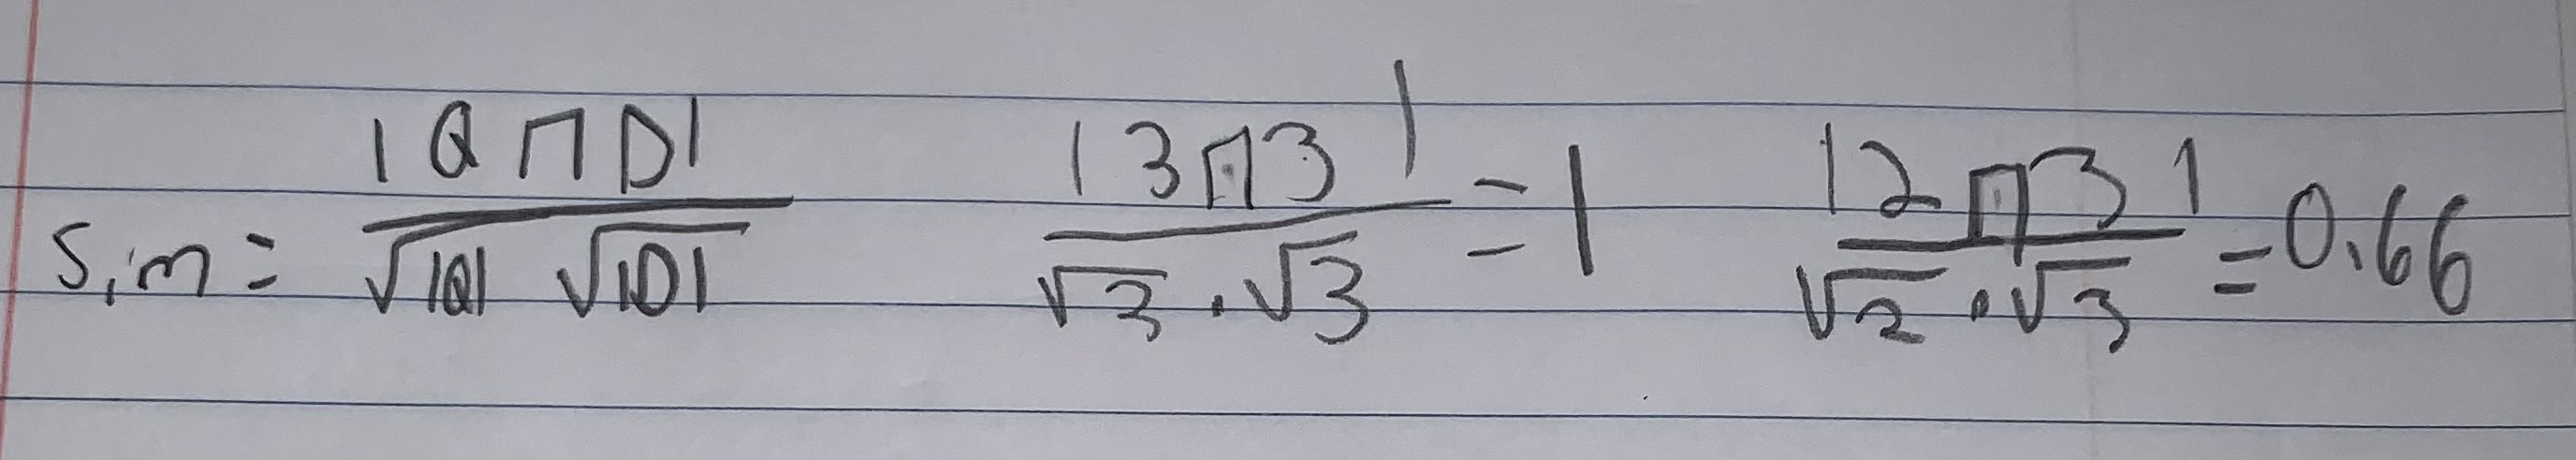 Sim = |Q ∩ D| / √|Q| √|D|    |3 ∩ 3| / √3 · √3 = 1    |2 ∩ 3| / √2 · √3 = 0.66